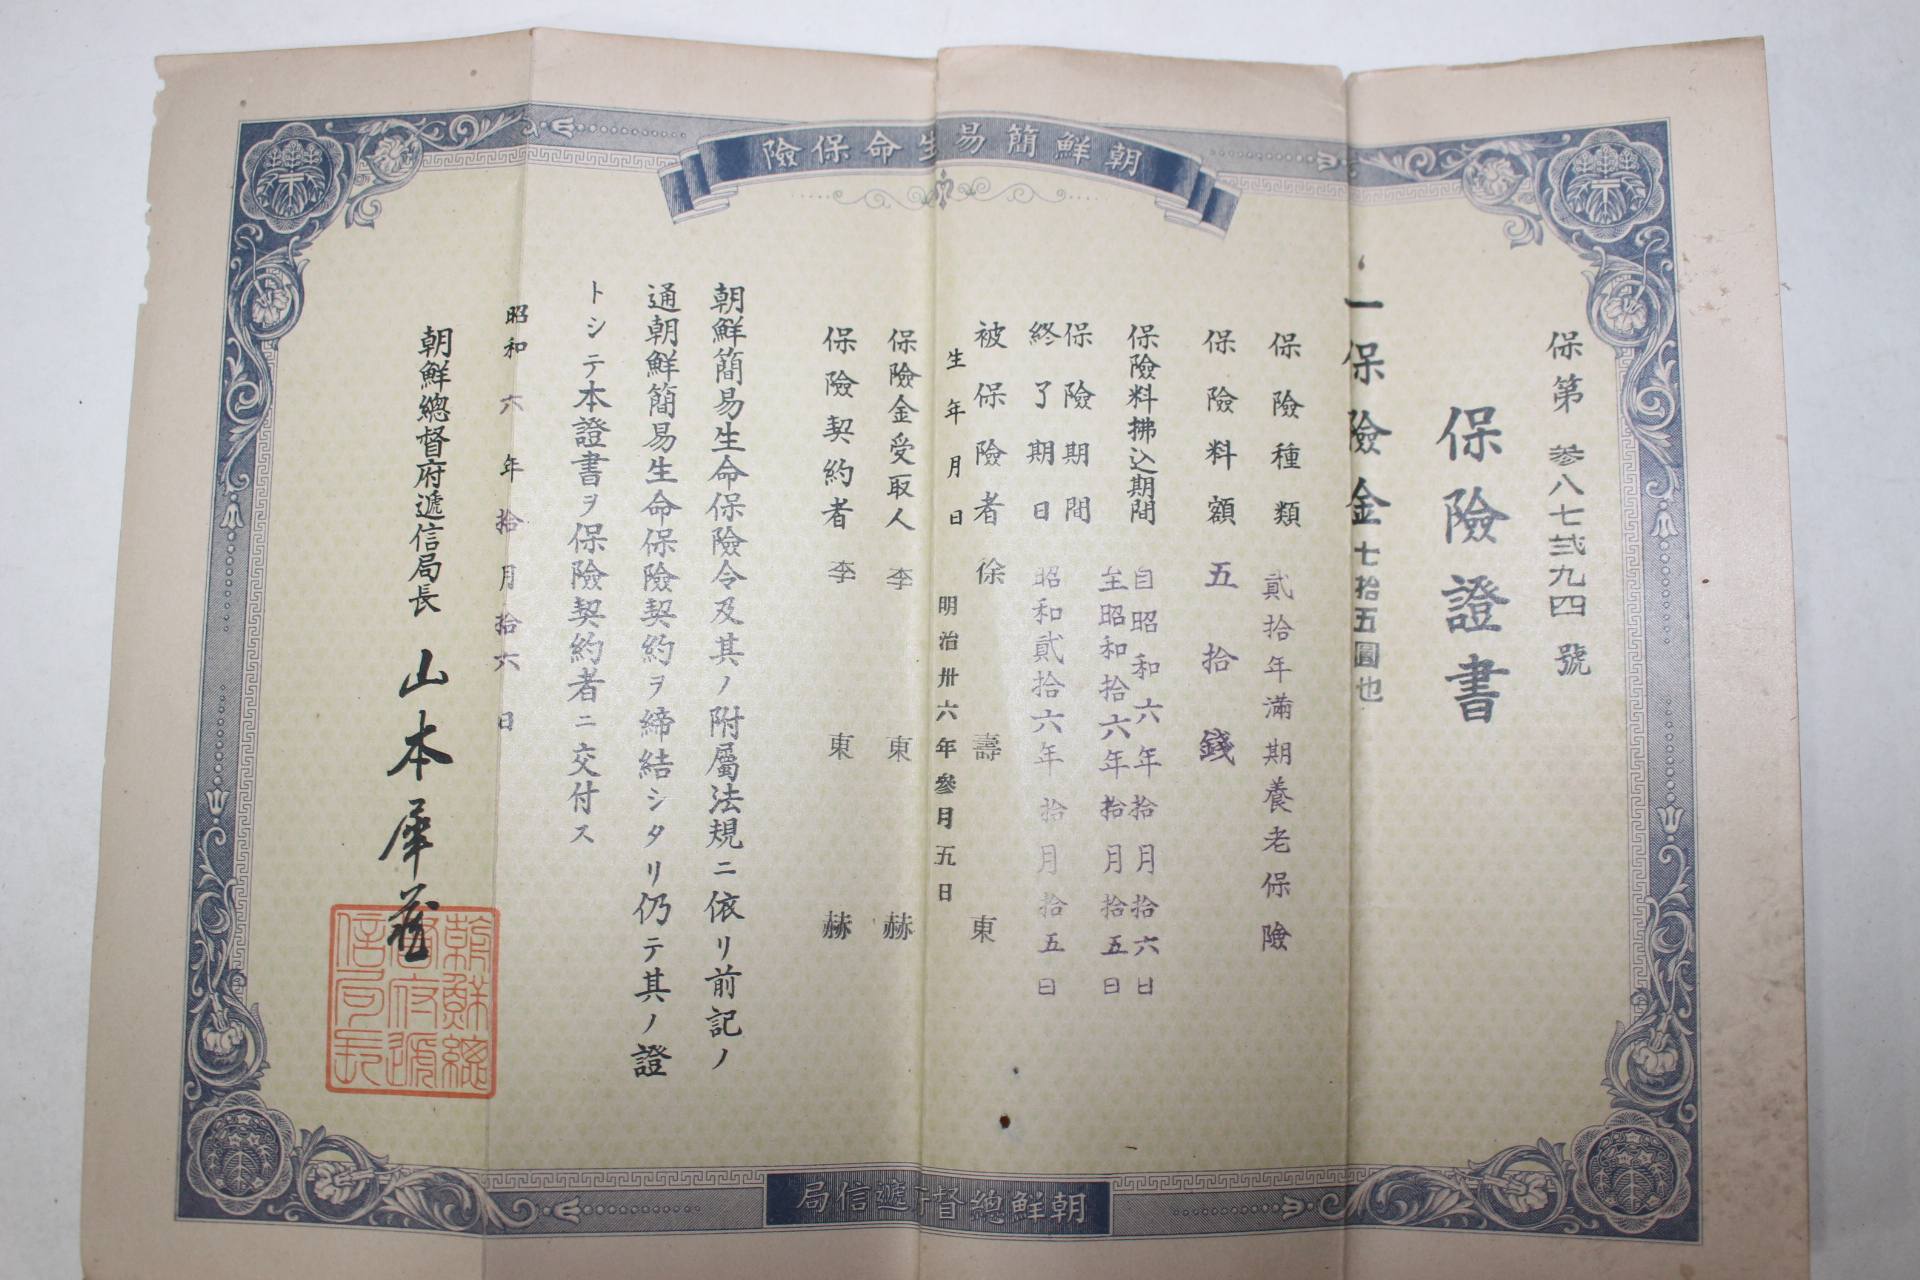 朝鮮簡易生命保險
保第参八七弐九四號
保險證書
一保險金七拾五圓也
保險種類 貳拾年滿期養老保險
保險料額 五拾錢
保險料拂込期間 自昭和六年拾月拾六日
至昭和拾六年拾月拾五日
保險期間
終了期日 昭和貳拾六年拾月拾五日
被保險者 徐壽東
生年月日 明治卅六年參月五日
保險金受取人 李東赫
保險契約者 李東赫
朝鮮簡易生命保險令及其ノ附屬法規ニ依リ前記ノ
通朝鮮簡易生命保險契約ヲ締結シタリ仍テ其ノ證
トシテ本證書ヲ保險契約者ニ交付ス
昭和六年拾月拾六日
朝鮮總督府遞信局長 山本犀藏
朝鮮總督府遞信局長
朝鮮總督府遞信局